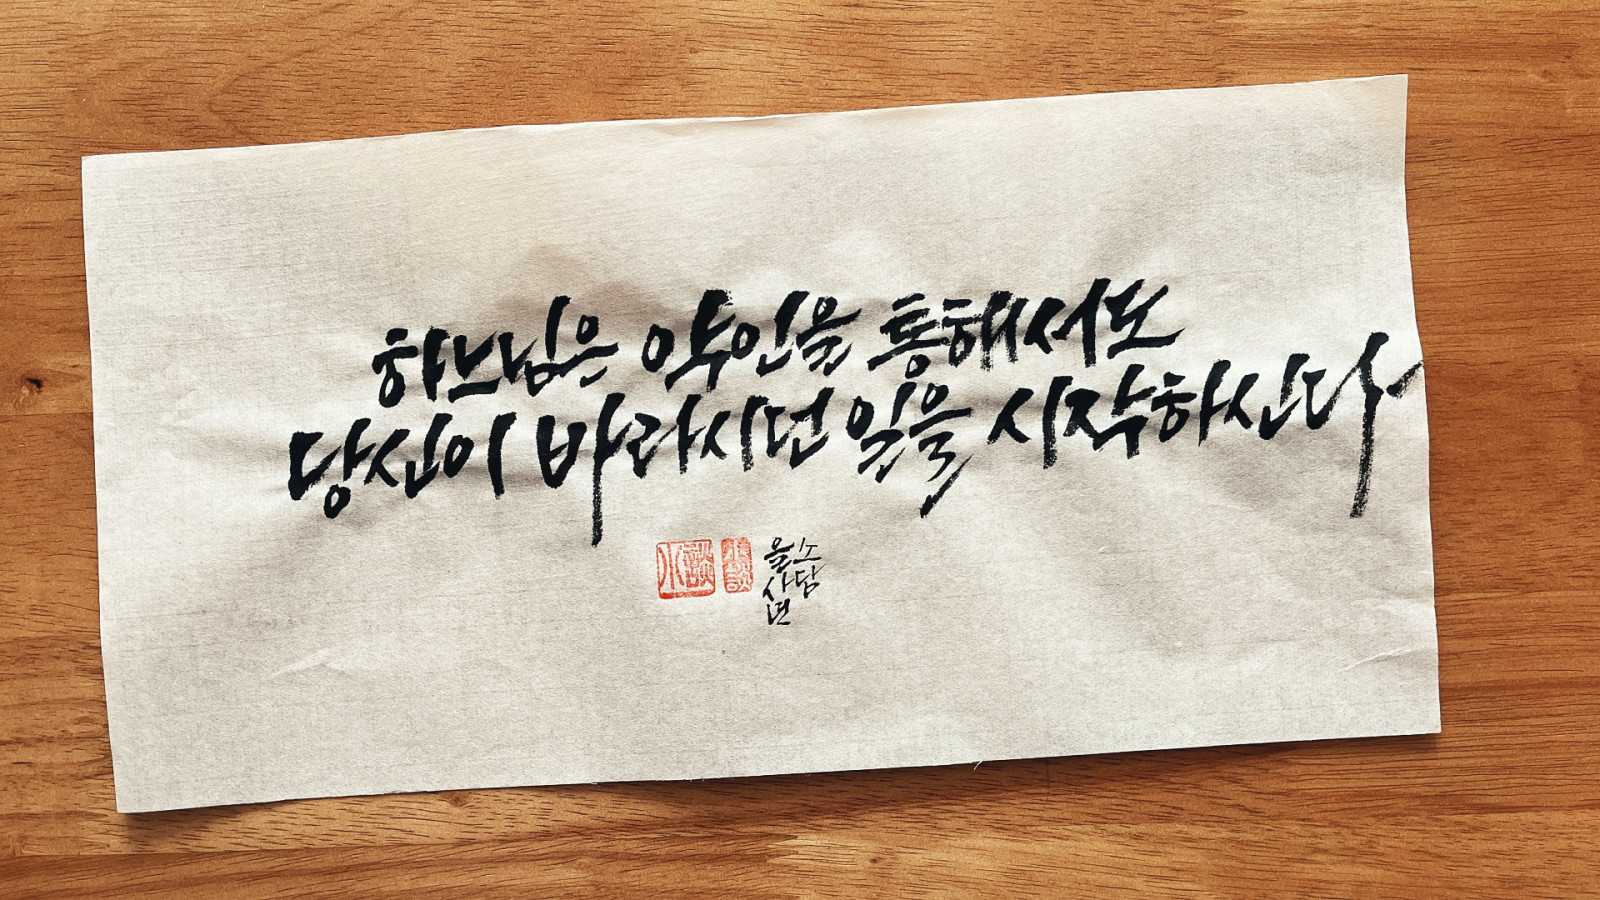 하느님은 악인을 통해서도
당신이 바라시던 일을 시작하신다
소담
을사년